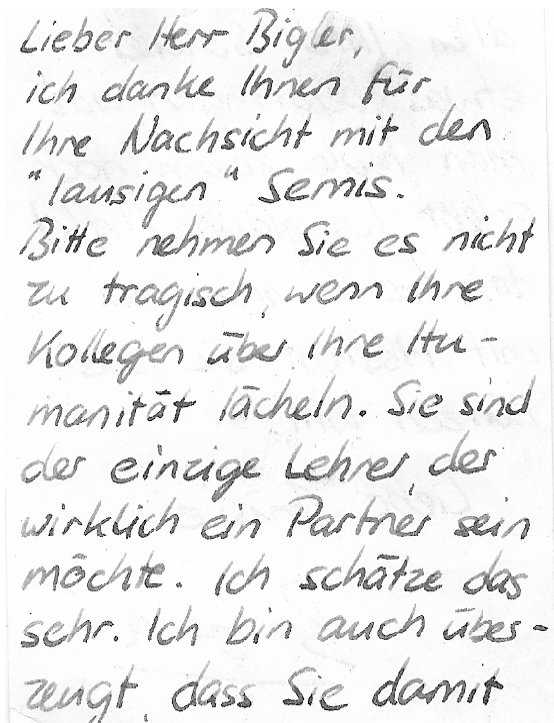 Lieber Herr Bigler,
ich danke Ihnen für
Ihre Nachsicht mit den
"lausigen" Semis.
Bitte nehmen Sie es nicht
zu tragisch, wenn Ihre
Kollegen über Ihre Hu-
manität lächeln. Sie sind
der einzige Lehrer, der
wirklich ein Partner sein
möchte. Ich schätze das
sehr. Ich bin auch über-
zeugt, dass Sie damit